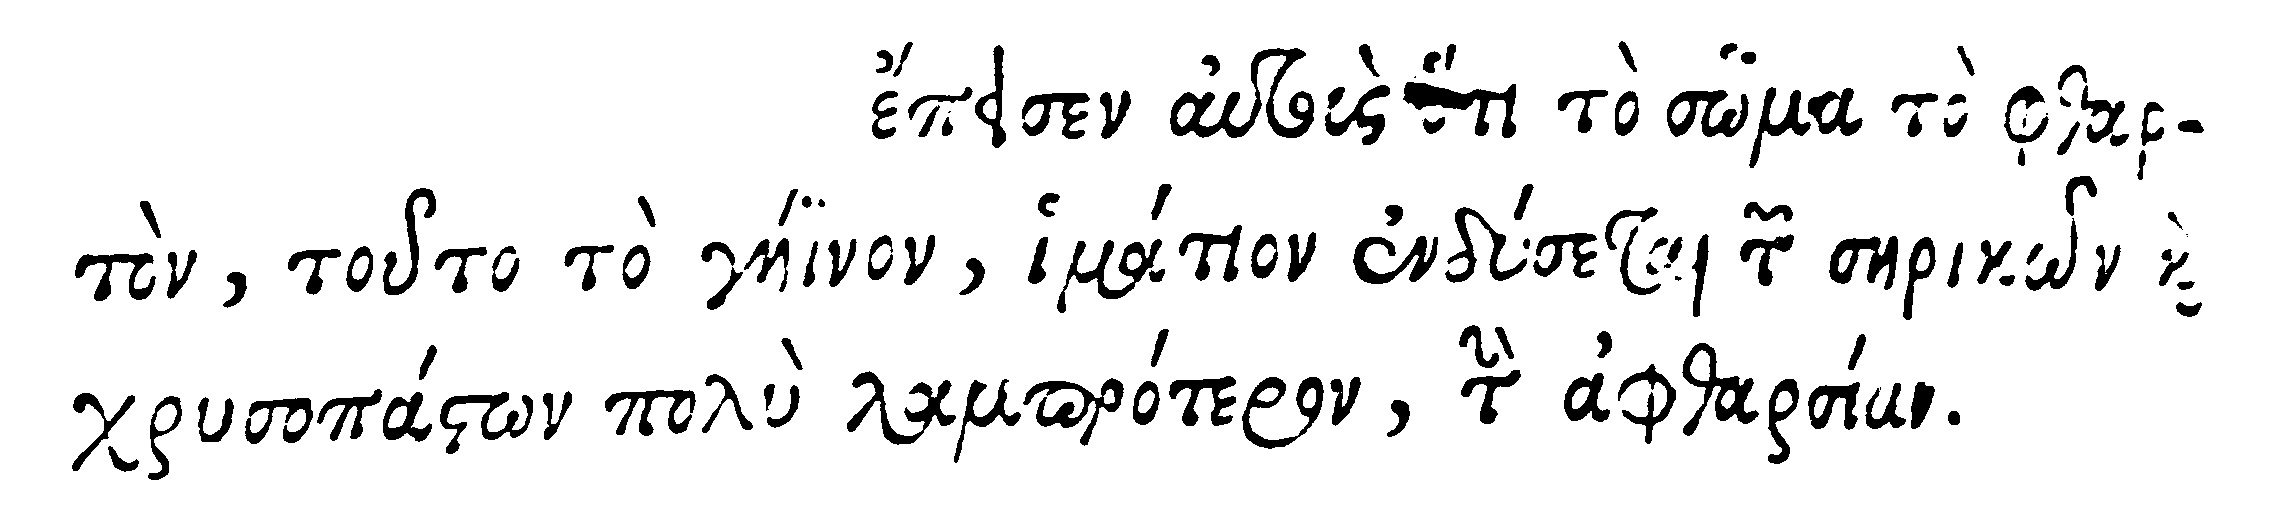 ἔπεισεν αὐτοὺς ὅτι τὸ σῶμα τὸ φθαρ-
τὸν, τοῦτο τὸ γήϊνον, ἱμάτιον ἐνδύσεται τῶν σηρικῶν καὶ
χρυσοπάστων πολὺ λαμπρότερον, τὴν ἀφθαρσίαν.